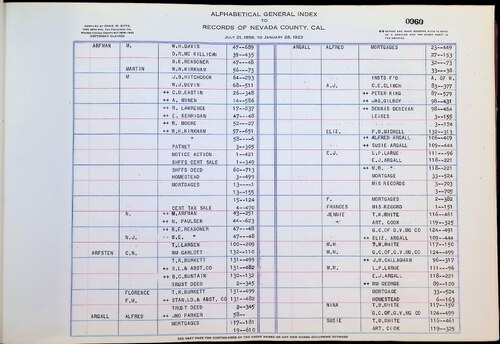 ALPHABETICAL GENERAL INDEX
TO
RECORDS OF NEVADA COUNTY, CAL.
JULY 21, 1856, TO JANUARY 28, 1923
0060
ARFMAN M. W.H.DAVIS 47--689
D.R.MC KILLICAN 39--435
B.E.REASONER 47--48
MARTIN W.N.KIRKHAM 56--73
M J.B.HITCHCOCK 64--293
W.J.DEVIN 68--511
++ C.D.EASTIN 26--348
++ A. MONEN 14--586
++ R. LAWRENCE 17--037
++ C. KERRIGAN 47--48
++ W. MOORE 52--27
++ W.H.KIRKHAM 57--651
" 58---6
PATNET 3--395
NOTICE ACTION 1--421
SHFFS CERT SALE 1--349
SHFFS DEED 60--713
HOMESTEAD 3--499
MORTGAGES 13---1
13--155
15--124
CERT TAX SALE 4--479
N. ++ M.ARFMAN 43--251
++ H. PAULSEN 44--623
++ B.E.REASONER 47--48
N.J. ++ B.E. " 47--48
T.LLARSEN 100--209
ARFSTEN C.N. MW GARLOTT 132--110
T.R.BURKETT 131--499
++ S.L.& ABST.CO 131--482
++ H.C.BUNTAIN 130--132
TRUST DEED 2--345
FLORENCE T.R.BURKETT 131--499
F.M. ++ STAN.LD.& ABST CO 131--482
TRUST DEED 2--345
ARGALL ALFRED ++ JNO PARKER 58--
MORTGAGES 17--181
19--610
ARGALL ALFRED MORTGAGES 23--449
27--153
32--73
33--38
INSTS F'D A. OF M.
A.J. C.E.CLINCH 83--377
++ PETER KING 87--579
++ JAS.GILROY 98--431
++ DENNIS DONOVAN 98--464
LEASES 3--155
3--158
ELIZ. F.G.BIDWELL 132--313
++ ALFRED ARGALL 106--409
++ SUSIE ARGALL 109--444
E.J. L.P.LARUE 111---96
E.J.ARGALL 118--221
++ W.H. " 118--221
MORTGAGE 33--524
MIS RECORDS 3--703
3--705
F. MORTGAGE 2--382
FRANCES MIS RECORDS 1--151
JENNIE T.W.WHITE 116--461
" ART. COOK 119--325
G.C.OF G.V.MG CO 124--491
++ ELIZ. ARGALL 109--444
W.H. T.W.WHITE 117--150
W.H. G.C.OF G.V.MG CO 124--499
++ J.H.CALLAGHAN 96--317
W.H. L.P.LARUE 111---96
E.J.ARGALL 118--221
++ MW GEORGE 89--120
MORTGAGE 33--524
HOMESTEAD 6--165
NINA T.W.WHITE 117--150
G.C.OF G.V.MG CO 124--499
SUSIE T.W.WHITE 116--461
ART. COOK 119--325